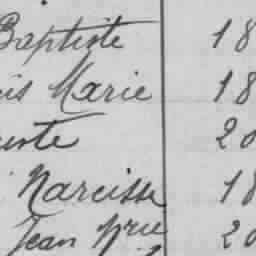 Baptiste 18
is Marie 18
uste 20
Narcisse 18
Jean Mrie 20